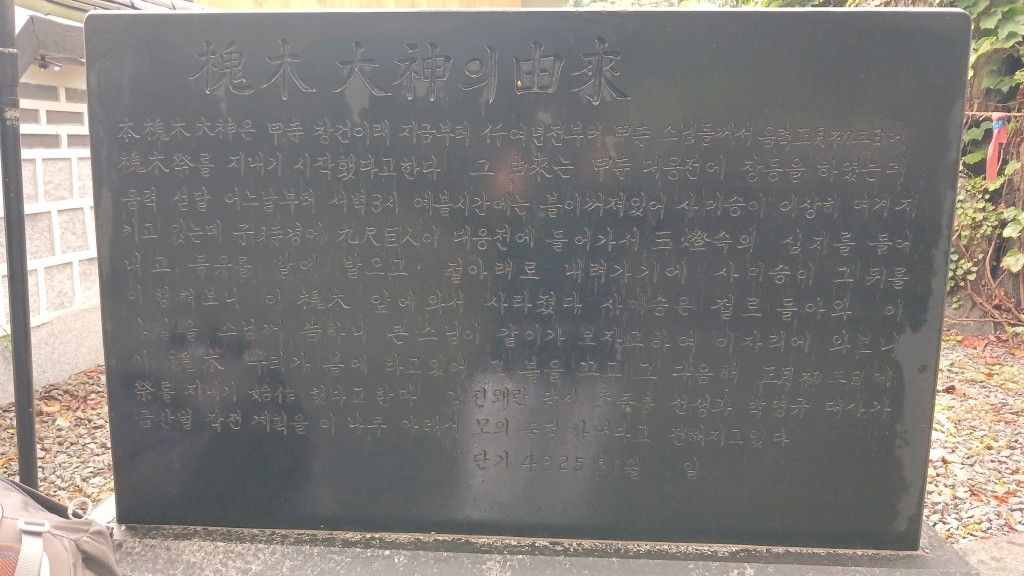 槐木 大神의 由來
本槐木大神은 甲寺 창건이래 지금부터 仟여년전부터 甲寺 스님들께서 음력正月初三日에
槐木祭를 지내기 시작했다고한다 그 由來는 甲寺 대웅전에 장등을 하였는데
음력 섣달 어느날부터 새벽3시 예불시간에는 불이꺼져있어 사미승이 이상히 여겨 지
키고 있는데 子正경에 九尺巨人이 대웅전에 들어가서 玉燈속의 심지를 들어
내고 등유를 발에 발으고 절아래로 내려가기에 사미승이 그 뒤를
해보니 이 槐木 앞에 와서 사라졌다 사미승은 절로 돌아와 이
스님께 말하니 큰스님이 같이가 보자고하여 이자리에 와보니
이 槐木 뿌리가 불에 타고있어 그 불을 끄고 그 다음해 正月初三日에
祭를 지내기 始作 했다고 한다 왜란 당시 선생과 대사가
금산벌 작전 계획을 이 나무 아래서 모의 하였다고 전해지고있다
단기 4325 월 일